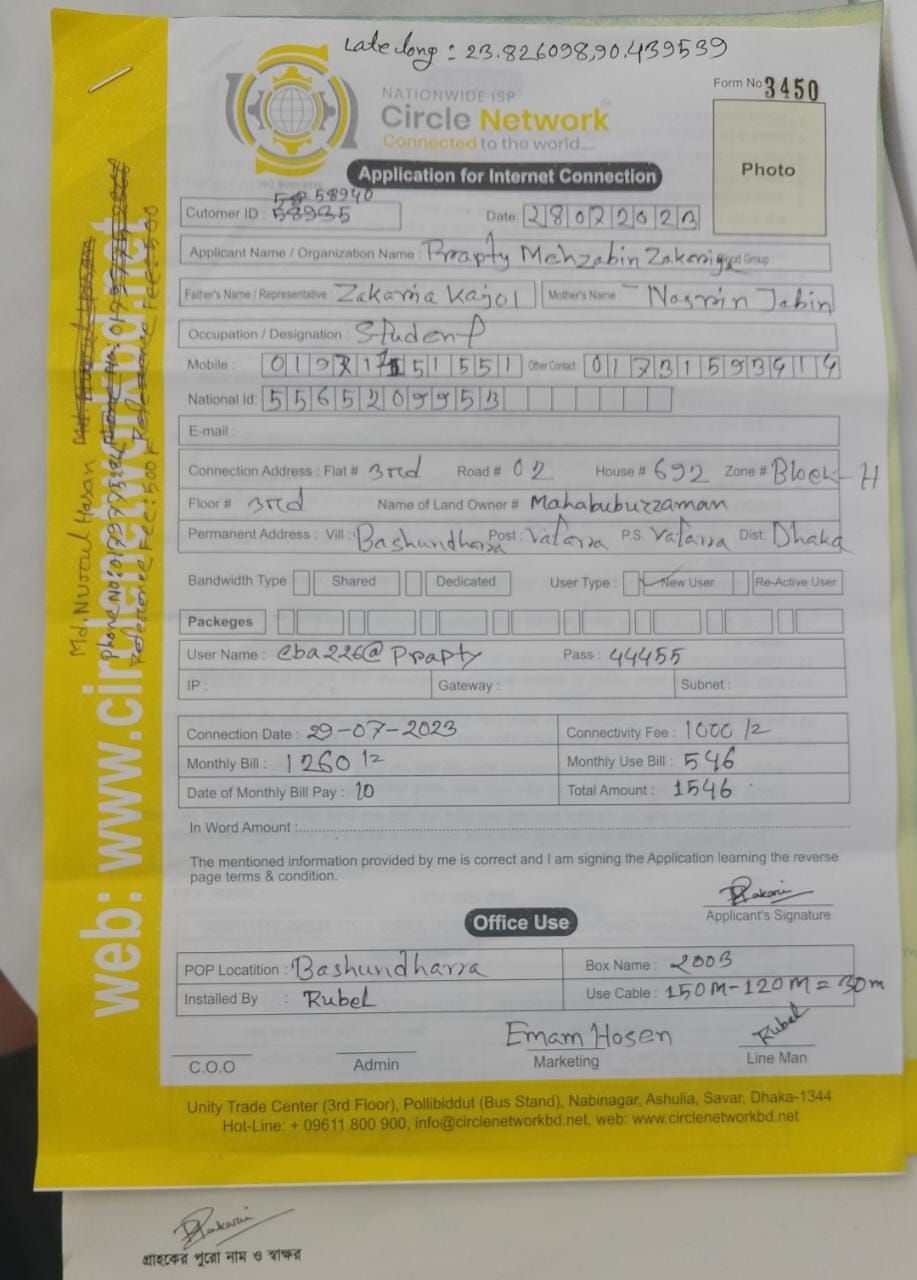 Late long : 23.826098,90.439539
Form No 3450
NATIONWIDE ISP
Circle Network
Connected to the world....
Photo
Application for Internet Connection
58940
Cutomer ID : 58935 Date: 28072023
Applicant Name / Organization Name : Prapty Mehzabin Zakariya Blood Group
Father's Name / Representative : Zakaria Kajol Mother's Name : Nasrin Jabin
Occupation / Designation : Student
Mobile : Other Contact : 01731593414
National Id: 5565209953
E-mail :
Connection Address : Flat # 3rd Road # 02 House # 692 Zone # Block-H
Floor # 3rd Name of Land Owner # Mahabubuzzaman
Permanent Address : Vill : Bashundhara Post : Vatara P.S. Vatara Dist: Dhaka
Bandwidth Type Shared Dedicated User Type : New User Re-Active User
Packeges
User Name : cba226@Prapty Pass : 44455
IP : Gateway : Subnet :
Connection Date : 29-07-2023 Connectivity Fee : 1000/=
Monthly Bill : 1260/= Monthly Use Bill : 546
Date of Monthly Bill Pay : 10 Total Amount : 1546
In Word Amount :
The mentioned information provided by me is correct and I am signing the Application learning the reverse
page terms & condition.
Zakaria
Applicant's Signature
Office Use
POP Locatition : Bashundhara Box Name : 2003
Installed By : Rubel Use Cable : 150M-120M = 30m
Emam Hosen Rubel
C.O.O Admin Marketing Line Man
Unity Trade Center (3rd Floor), Pollibiddut (Bus Stand), Nabinagar, Ashulia, Savar, Dhaka-1344
Hot-Line: + 09611 800 900, info@circlenetworkbd.net, web: www.circlenetworkbd.net
web: www.circlenetworkbd.net
Md. Nurul Hasan
Phone No:
Reference Fee: 500
Zakaria
গ্রাহকের পুরো নাম ও স্বাক্ষর